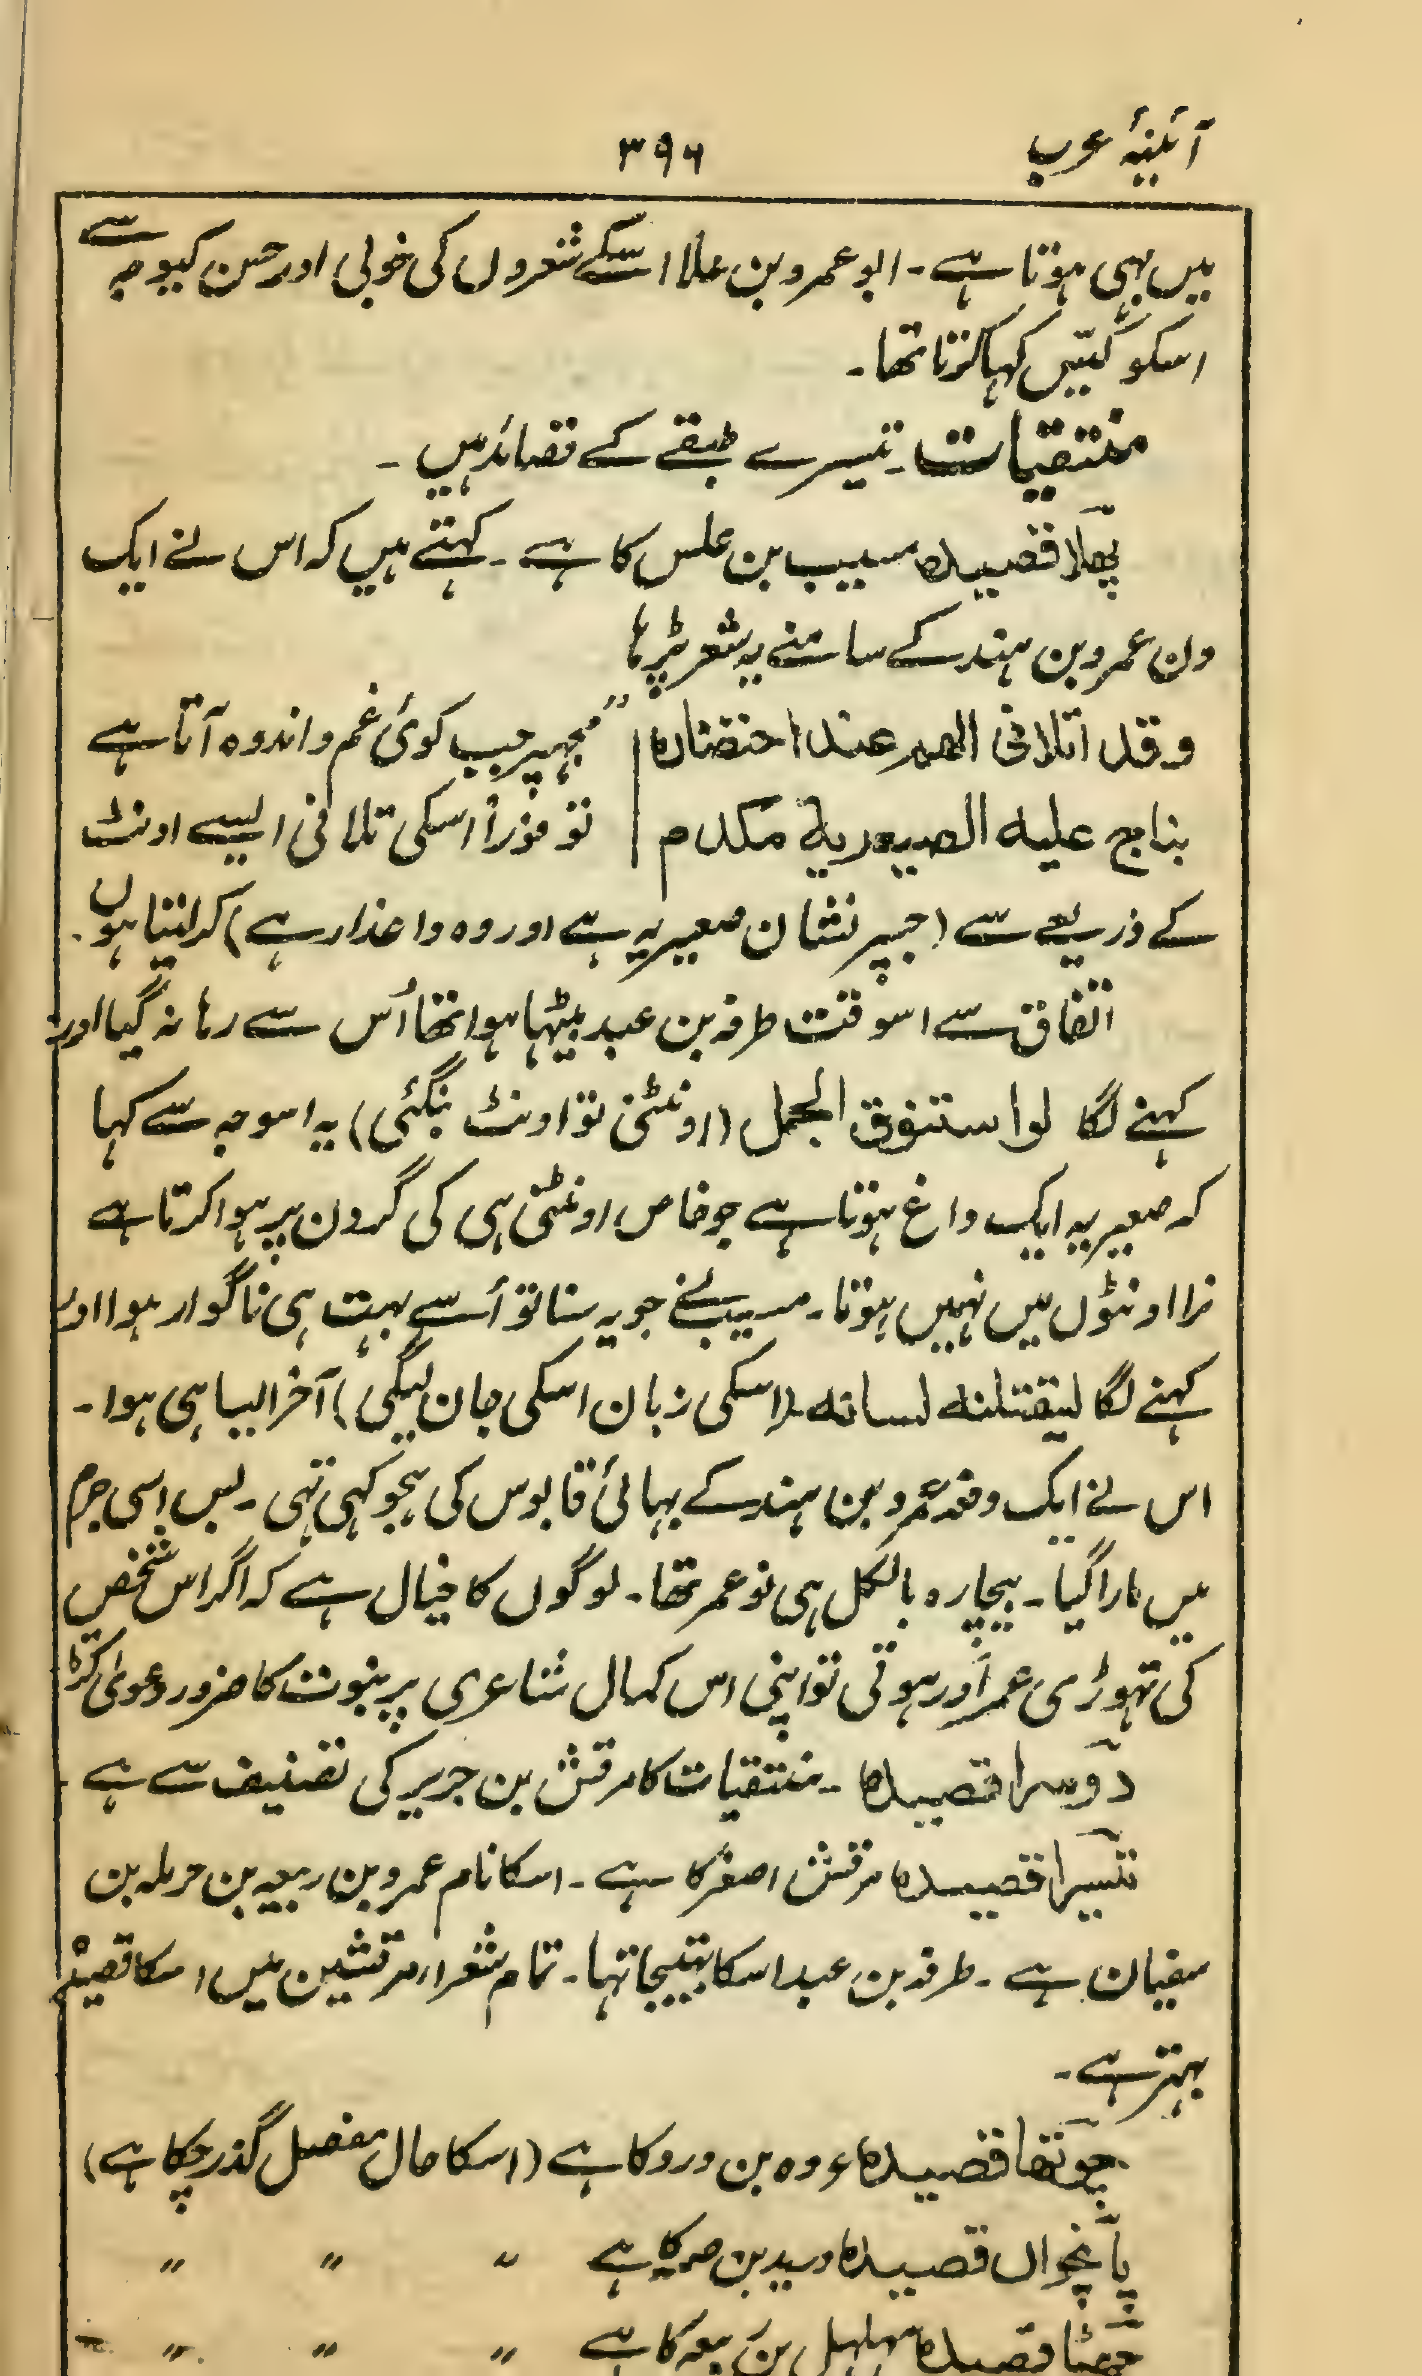 آئینۂ عرب
۳۹۶
میں بہی ہوتا ہے۔ ابو عمرو بن علا اسکے شعروں کی خوبی اور حسن کیوجہ سے
اسکو کیّس کہا کرتا تھا۔
منتقیات۔ تیسرے طبقے کے قصائد ہیں۔
پھلا قصیدہ مسیب بن علس کا ہے۔ کہتے ہیں کہ اس نے ایک
دن عمرو بن ہند کے سامنے یہ شعر پڑہا
وقد اتلافی الھم عند احتضارہ | "مجہپر جب کوئی غم و اندوہ آتا ہے
بناج علیہ الصیعریة مکدم | تو فوراً اسکی تلافی ایسے اونٹ
کے ذریعے سے (جسپر نشان صعیریہ ہے اور وہ داغدار ہے) کرلیتا ہوں۔
اتفاق سے اسوقت طرفہ بن عبد بیٹہا ہوا تھا اُس سے رہا نہ گیا اور
کہنے لگا لو استنوق الجمل (اونٹنی تو اونٹ بنگئی) یہ اسوجہ سے کہا
کہ صعیریہ ایک داغ ہوتا ہے جو خاص اونٹنی ہی کی گردن پر ہوا کرتا ہے
نر اونٹوں میں نہیں ہوتا۔ مسیب نے جو یہ سنا تو اُسے بہت ہی ناگوار ہوا اور
کہنے لگا لیقتلنہ لسانہ (اسکی زبان اسکی جان لیگی) آخر ایسا ہی ہوا۔
اس نے ایک دفعہ عمرو بن ہند کے بہائی قابوس کی ہجو کہی تہی۔ بس اسی جرم
میں مارا گیا۔ بیچارہ بالکل ہی نوعمر تھا۔ لوگوں کا خیال ہے کہ اگر اس شخص
کی تہوڑی عمر اَور ہوتی تو اپنی اس کمال شاعری پر نبوت کا ضرور دعویٰ کرتا
دوسرا قصیدہ۔ منتقیات کا مرقش بن جریر کی تصنیف سے ہے۔
تیسرا قصیدہ مرقش اصغر کا ہے۔ اسکا نام عمرو بن ربیعہ بن حرملہ بن
سفیان ہے۔ طرفہ بن عبد اسکا بہتیجا تہا۔ تمام شعراء مرقشین میں اسکا قصیدہ
بہتر ہے۔
چوتھا قصیدہ عروہ بن ورد کا ہے (اسکا حال مفصل گذر چکا ہے)
پانچواں قصیدہ درید بن صمہ کا ہے " " "
چھٹا قصیدہ مہلہل بن ربیعہ کا ہے " " "